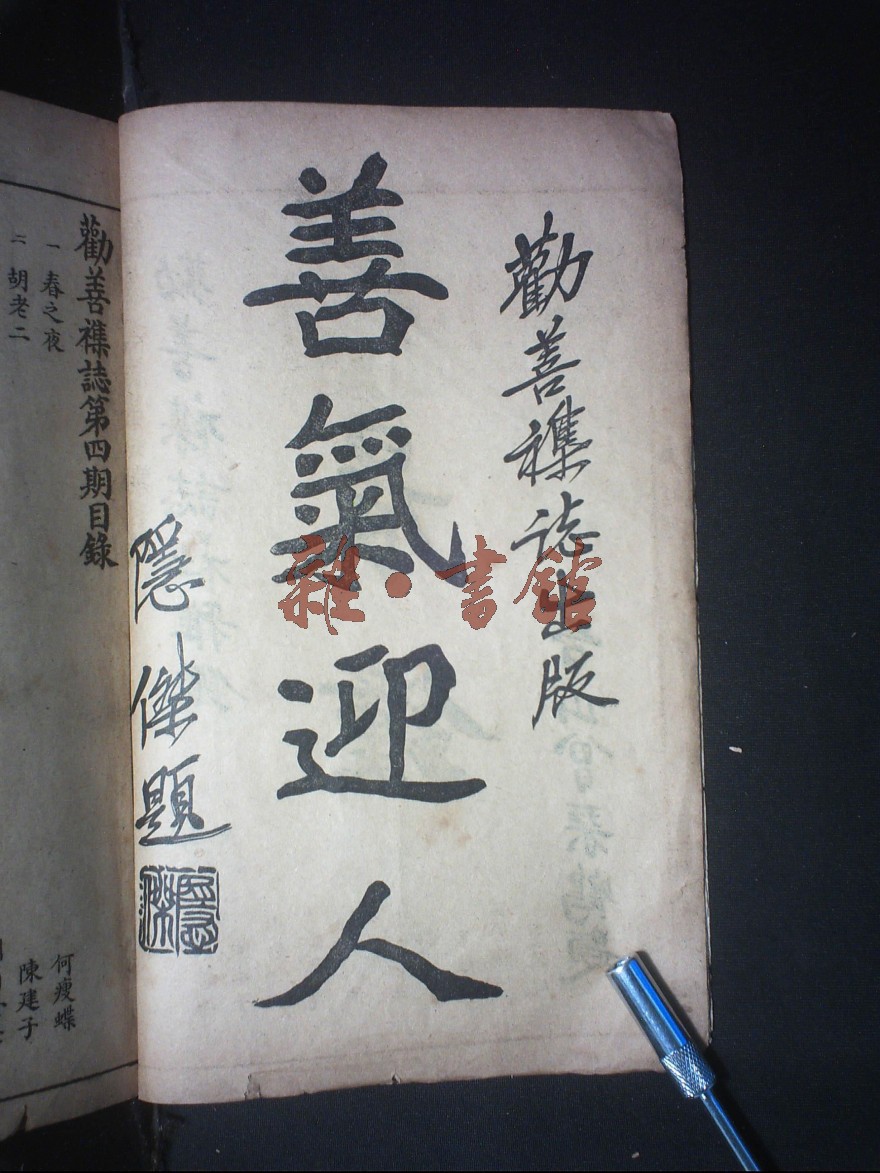 勸善襍誌出版
善氣迎人
隱傑題
隱傑
勸善襍誌第四期目錄
一 春之夜 何瘦蝶
二 胡老二 陳建子
雜·書館